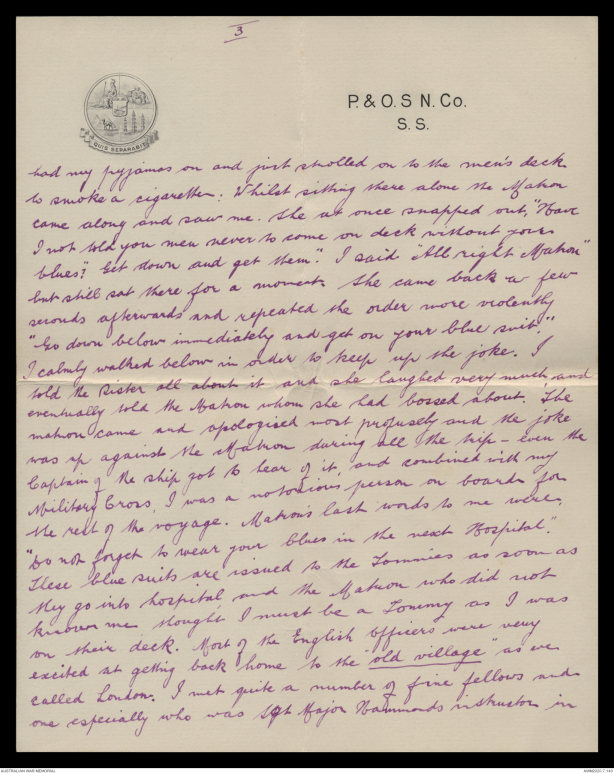 3
P. & O. S N. Co.
S. S.
QUIS SEPARABIT
had my pyjamas on and just strolled on to the men's deck
to smoke a cigarette. Whilst sitting there alone the Matron
came along and saw me. She at once snapped out, "Have
I not told you men never to come on deck without your
blues"? Get down and get them". I said "All right Matron"
but still sat there for a moment. She came back a few
seconds afterwards and repeated the order more violently
"Go down below immediately and get on your blue suit."
I calmly walked below in order to keep up the joke. I
told the Sister all about it and she laughed very much and
eventually told the Matron whom she had bossed about. The
matron came and apologised most profusely and the joke
was up against the Matron during all the trip – even the
Captain of the ship got to hear of it, and combined with my
Military Cross, I was a notorious person on board for
the rest of the voyage. Matron's last words to me were,
"Do not forget to wear your blues in the next Hospital".
These blue suits are issued to the Tommies as soon as
they go into hospital and the Matron who did not
know me thought I must be a Tommy as I was
on their deck. Most of the English officers were very
excited at getting back home to the "old village" as we
called London. I met quite a number of fine fellows and
one especially who was Sgt Major Hammonds instructor in
AUSTRALIAN WAR MEMORIAL